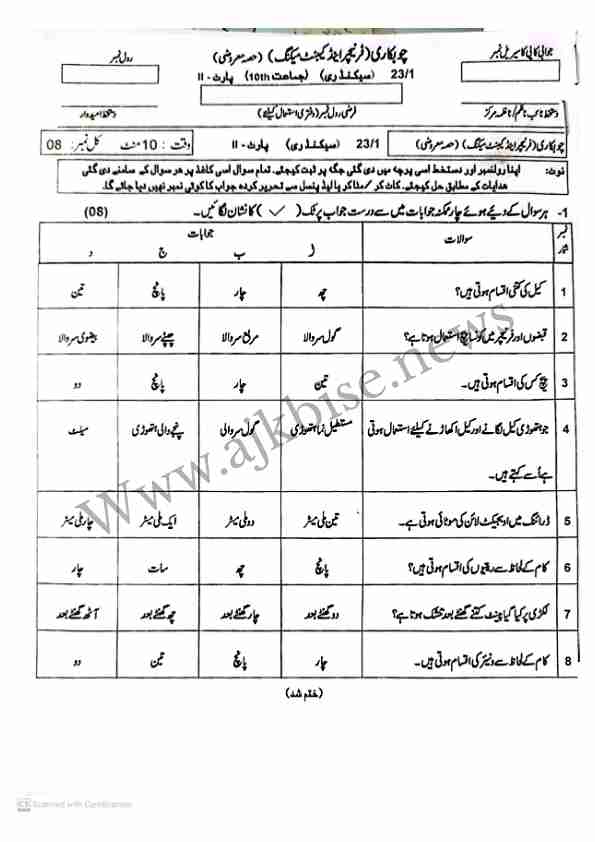 جوابی کاپی کا سیریل نمبر
چوبکاری (فرنیچر اینڈ کیبنٹ میکنگ) (حصہ معروضی)
رول نمبر
23/1 (سیکنڈری) (جماعت 10th) پارٹ - II
دستخط نائب ناظم / ناظمہ مرکز
فرضی رول نمبر (دفتری استعمال کیلئے)
دستخط امیدوار
چوبکاری (فرنیچر اینڈ کیبنٹ میکنگ) (حصہ معروضی) 23/1 (سیکنڈری) پارٹ - II وقت : 10 منٹ کل نمبر: 08
نوٹ: اپنا رولنمبر اور دستخط اسی پرچہ میں دی گئی جگہ پر ثبت کیجئے۔ تمام سوال اسی کاغذ پر ہر سوال کے سامنے دی گئی
ہدایات کے مطابق حل کیجئے۔ کاٹ کر / مٹا کر یا لیڈ پنسل سے تحریر کردہ جواب کا کوئی نمبر نہیں دیا جائے گا۔
1- ہر سوال کے دیے ہوئے چار ممکنہ جوابات میں سے درست جواب پر ٹک (✓) کا نشان لگائیں۔ (08)
نمبر شمار سوالات جوابات
ا ب ج د
1 کیل کی کتنی اقسام ہوتی ہیں؟ چھ چار پانچ تین
2 قبضوں اور فرنیچر میں کونسا پیچ استعمال ہوتا ہے؟ گول سر والا مربع سر والا چپٹے سر والا بیضوی سر والا
3 پیچ کس کی اقسام ہوتی ہیں۔ تین چار پانچ دو
4 جو ہتھوڑی کیل لگانے اور کیل اکھاڑنے کیلئے استعمال ہوتی مستطیل نما ہتھوڑی گول سر والی پنجے والی ہتھوڑی میلٹ
ہے اُسے کہتے ہیں۔
5 ڈرائنگ میں اوبجیکٹ لائن کی موٹائی ہوتی ہے۔ تین ملی میٹر دو ملی میٹر ایک ملی میٹر چار ملی میٹر
6 کام کے لحاظ سے رندوں کی اقسام ہوتی ہیں؟ پانچ چھ سات چار
7 لکڑی پر کیا گیا پینٹ کتنے گھنٹے بعد خشک ہوتا ہے؟ دو گھنٹے بعد چار گھنٹے بعد چھ گھنٹے بعد آٹھ گھنٹے بعد
8 کام کے لحاظ سے ونیئر کی اقسام ہوتی ہیں۔ چار پانچ تین دو
(ختم شد)
www.ajkbise.news
CS Scanned with CamScanner